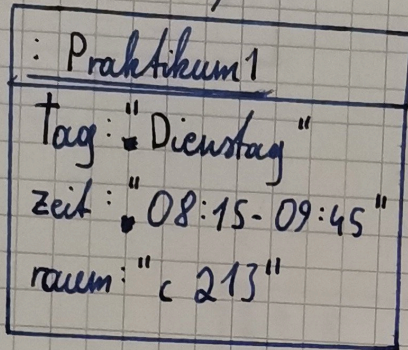 : Praktikum1
Tag: "Dienstag"
zeit: "08:15-09:45"
raum: "c 213"